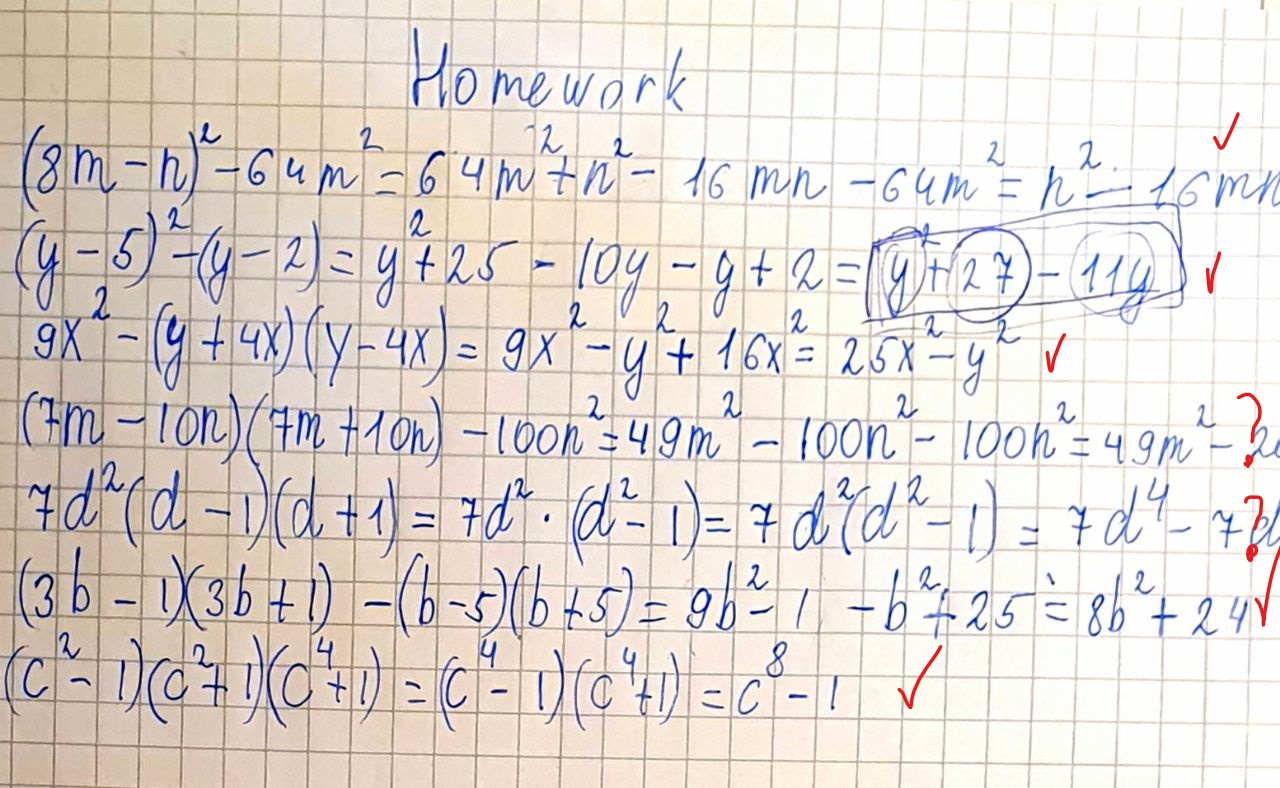 Homework
(8m - n)² - 64m² = 64m² + n² - 16mn - 64m² = n² - 16mn
(y - 5)² - (y - 2) = y² + 25 - 10y - y + 2 = y² + 27 - 11y
9x² - (y + 4x)(y - 4x) = 9x² - y² + 16x² = 25x² - y²
(7m - 10n)(7m + 10n) - 100n² = 49m² - 100n² - 100n² = 49m² - ?
7d²(d - 1)(d + 1) = 7d² · (d² - 1) = 7d²(d² - 1) = 7d⁴ - 7 ?
(3b - 1)(3b + 1) - (b - 5)(b + 5) = 9b² - 1 - b² + 25 = 8b² + 24
(c² - 1)(c² + 1)(c⁴ + 1) = (c⁴ - 1)(c⁴ + 1) = c⁸ - 1